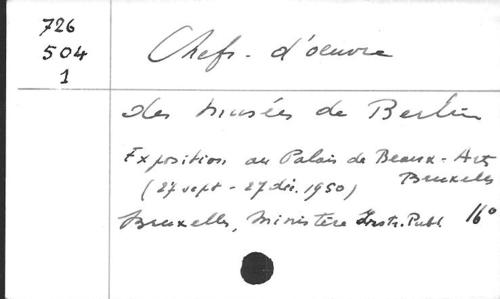 726
504
1
Chefs-d'oeuvre
des musées de Berlin
Exposition au Palais de Beaux-Arts
(27 sept - 27 déc. 1950) Bruxelles
Bruxelles, Ministère Instr. Publ 16°